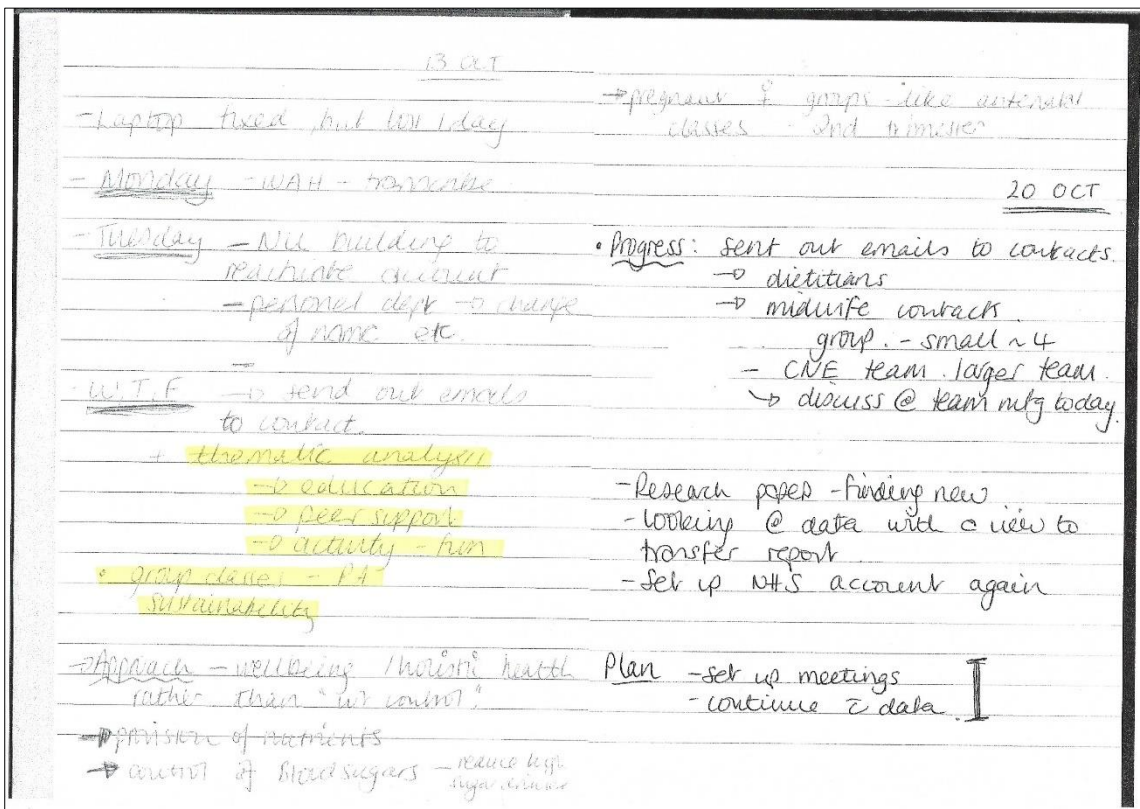 13 OCT
- Laptop fixed, but lost 1 day
- Monday - WAH - transcribe
- Tuesday - NU building to
reactivate account
- personel dept → change
of name etc.
→
- W.T.F → send out emails
to contact.
+ thematic analysis
→ education
→ peer support
→ activity - fun
• group classes - PA
sustainability
→ Approach - wellbeing / holistic health
rather than "wt control".
→ provision of nutrients
→ control of Blood sugars - reduce high
sugar
→ pregnant ♀ groups - like antenatal
classes - 2nd trimester
20 OCT
• Progress: sent out emails to contacts.
→ dietitians
→ midwife contacts.
group. - small ~ 4
- CNE team. larger team.
↳ discuss @ team mtg today.
- Research papes - finding new
- looking @ data with a view to
transfer report
- Set up NHS account again
Plan - set up meetings
- continue c̄ data.